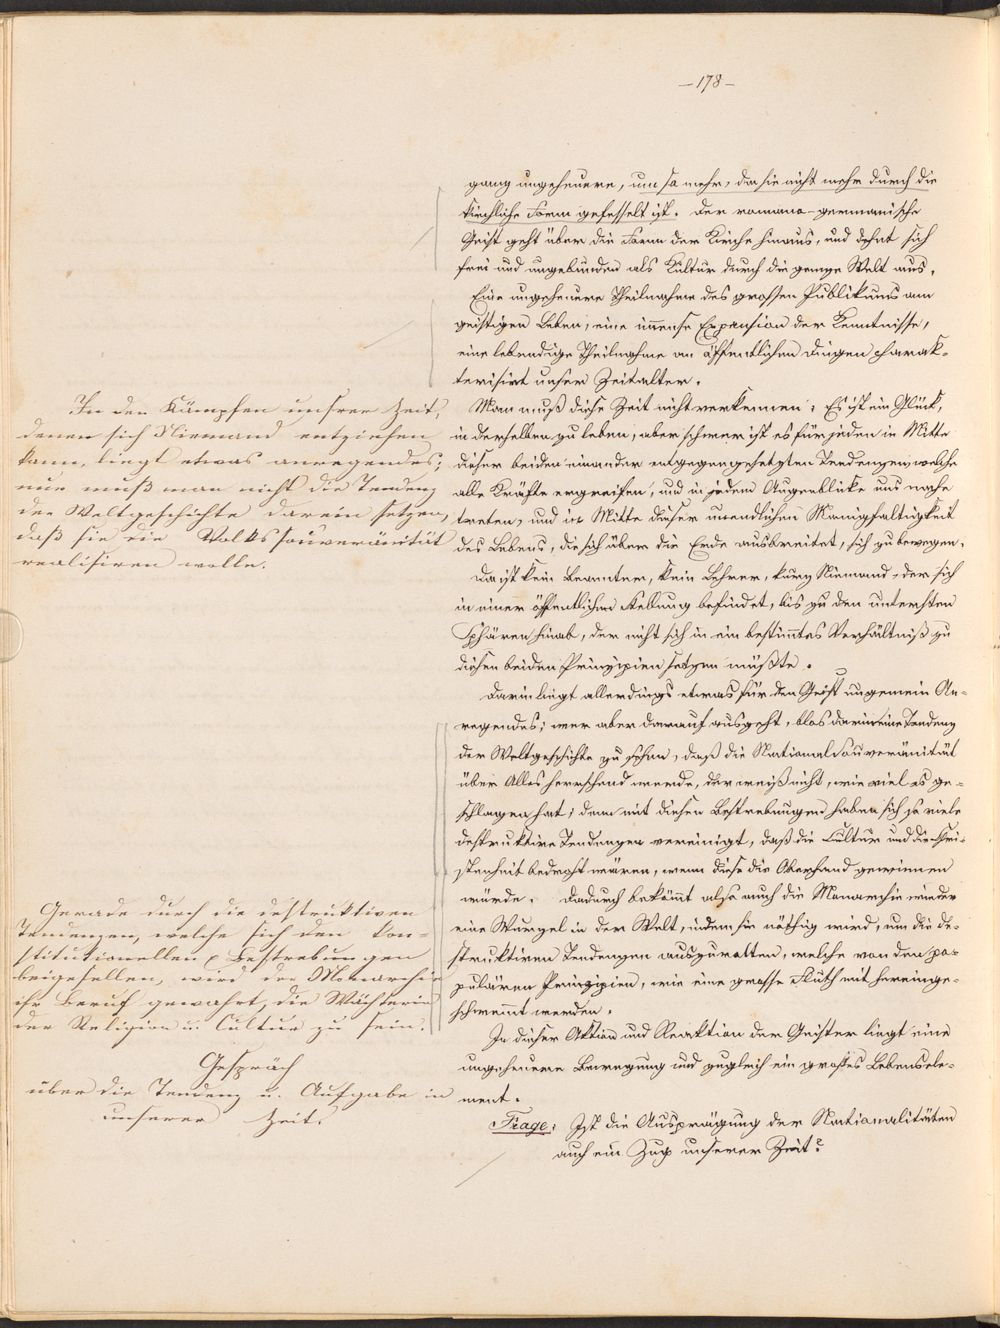 —178—
gang ungeheuere, um so mehr, da sie nicht mehr durch die
kirchliche Form gefesselt ist. Der romano-germanische
Geist geht über die Form der Kirche hinaus, und dehnt sich
frei und ungebunden als Kultur durch die ganze Welt aus.
Eine ungeheuere Theilnahme des grossen Publikums am
geistigen Leben, eine immense Expansion der Kenntnisse,
eine lebendige Theilnahme an öffentlichen Dingen charak-
terisirt unser Zeitalter.
Man muß diese Zeit nicht verkennen; Es ist ein Glück,
in derselben zu leben, aber schwer ist es für jeden in Mitte
dieser beiden einander entgegengesetzten Tendenzen, welche
alle Kräfte ergreifen, und in jedem Augenblicke uns nahe
treten, und in Mitte dieser unendlichen Manigfaltigkeit
des Lebens, die sich über die Erde ausbreitet, sich zu bewegen.
Da ist kein Beamter, kein Lehrer, kurz Niemand, der sich
in einer öffentlichen Stellung befindet, bis zu den untersten
Sphären hinab, der nicht sich in ein bestimmtes Verhältniß zu
diesen beiden Prinzipien setzen müßte.
Darin liegt allerdings etwas für den Geist ungemein An-
regendes; wer aber darauf ausgeht, blos darin eine Tendenz
der Weltgeschichte zu sehen, daß die Nationalsouveränität
über Alles herrschend werde, der weiß nicht, wie viel es ge-
schlagen hat; denn mit diesen Bestrebungen haben sich so viele
destruktive Tendenzen vereinigt, daß die Cultur und die Chri-
stenheit bedroht wären, wenn diese die Oberhand gewinnen
würde. Dadurch bekömmt also auch die Monarchie wieder
eine Wurzel in der Welt, indem sie nöthig wird, um die de-
struktiven Tendenzen auszurotten, welche von den po-
pulären Prinzipien, wie eine grosse Fluth mit hereinge-
schwemmt werden.
In dieser Aktion und Reaktion der Geister liegt eine
ungeheuere Bewegung und zugleich ein großes Lebensele-
ment.
Frage: Ist die Ausprägung der Nationalitäten
auch ein Zug unserer Zeit?
In den Kämpfen unserer Zeit,
denen sich Niemand entziehen
kann, liegt etwas anregendes;
nur muß man nicht die Tendenz
der Weltgeschichte darein setzen,
daß sie die Volkssouveränität
realisiren wolle.
Gerade durch die destruktiven
Tendenzen, welche sich den kon-
stitutionellen Bestrebungen
beigesellen, wird der Monarchie
ihr Beruf gewahrt, die Wächterin
der Religion u. Cultur zu sein.
Gespräch
über die Tendenz u. Aufgabe in
unserer Zeit.